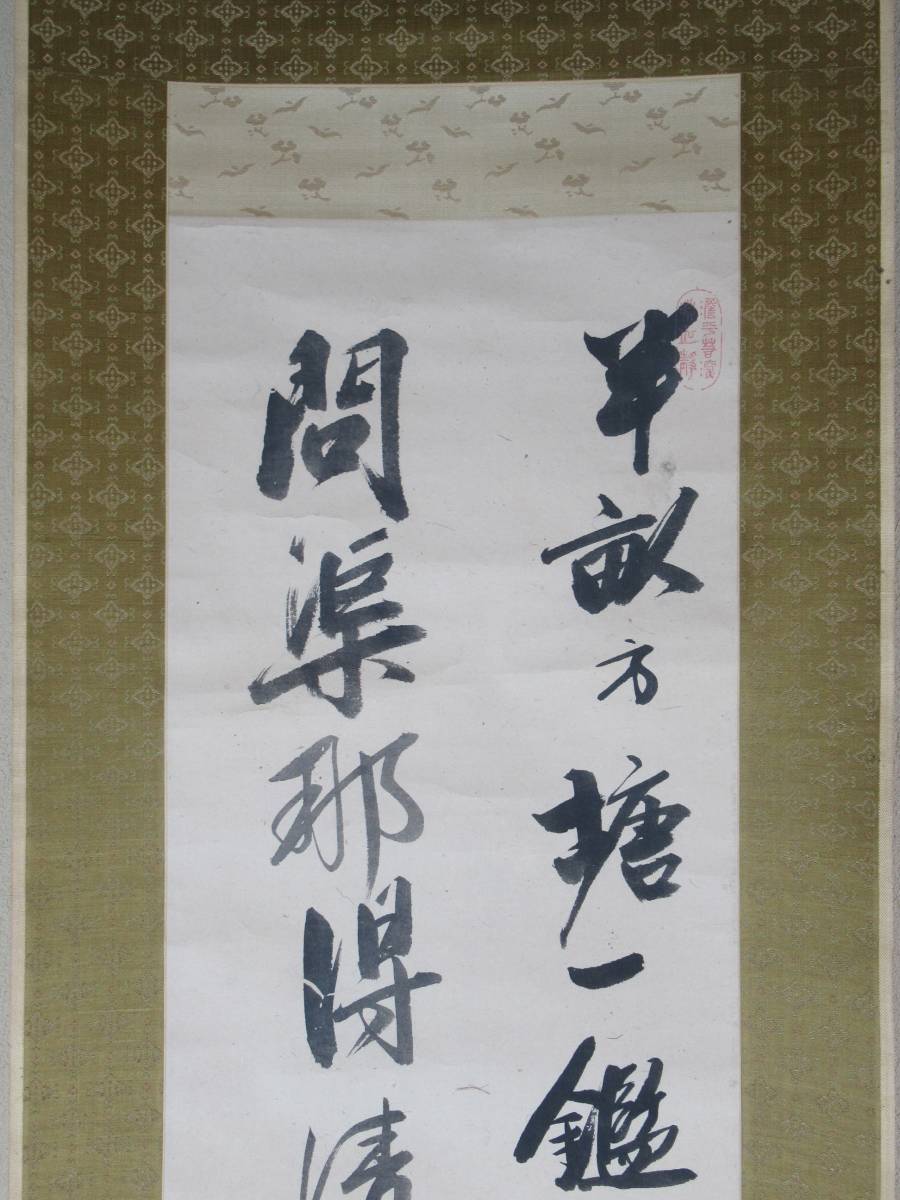 半畝方塘一鑑
問渠那得清